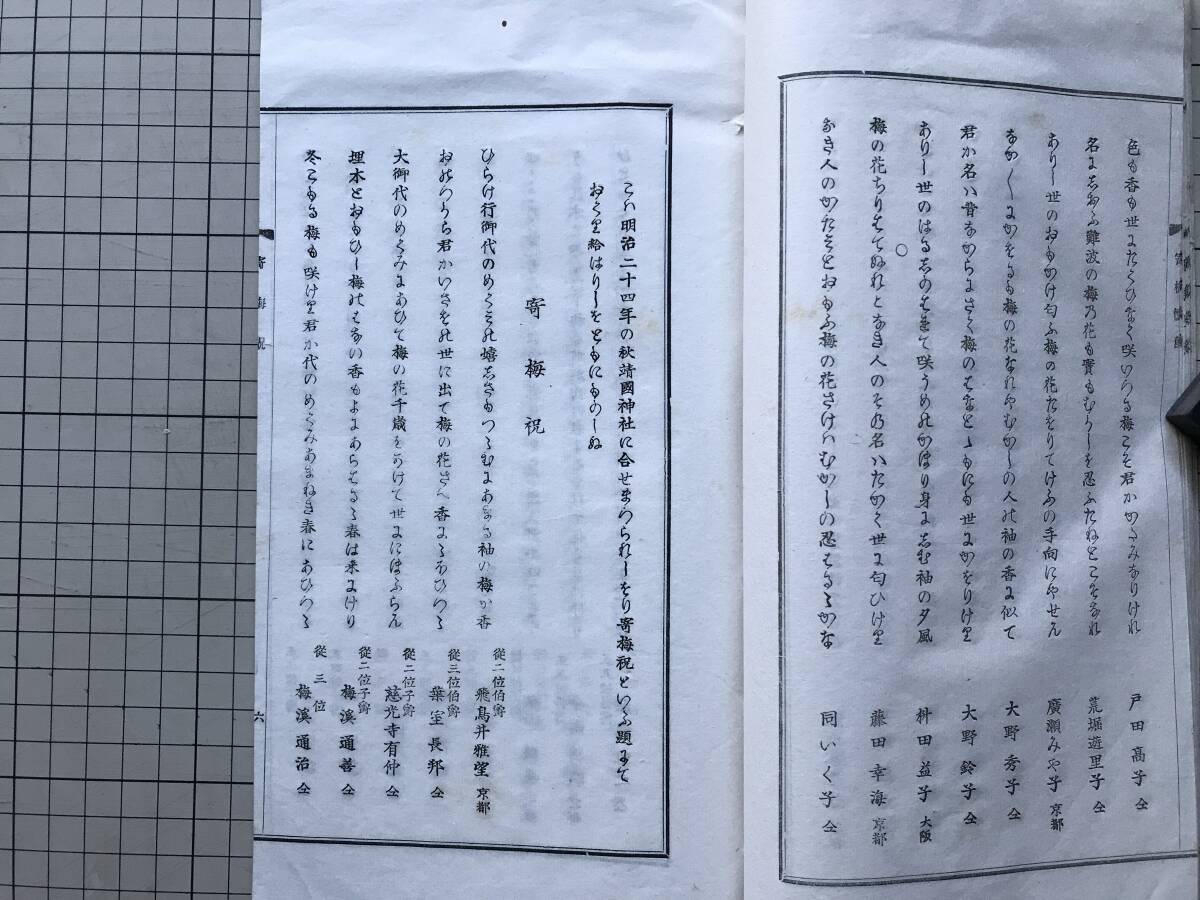 色も香も世にたくひなく咲いつる梅こそ君かかたみなりけれ 戸田高子 仝
名にしおふ難波の梅乃花も實もむかしを忍ふたねとこそなれ 荒堀遊里子 仝
ありし世のおもかけ匂ふ梅の花たをりてけふの手向にやせん 廣瀬みや子 京都
なかなかにかをるも梅の花なれやむかしの人の袖の香に似て 大野秀子 仝
君か名ハ昔なからにさく梅のはなとゝもにも世にかをりけり 大野鈴子 仝
ありし世のはるしのはせて咲うめのかほり身にしむ袖の夕風 枡田益子 大阪
梅の花ちりはてぬれとなき人のその名ハたかく世に匂ひけり 藤田幸海 京都
なき人のかたみとおもふ梅の花さけハむかしの忍はるゝかな 同いく子 仝
○
こハ明治二十四年の秋靖國神社に合せまつられしをり寄梅祝といふ題にて
おくり給はりしをともにものしぬ
寄梅祝
ひらけ行御代のめくみの嬉しさもつゝむにあまる袖の梅か香 從二位伯爵 飛鳥井雅望 京都
おのつから君かいさをの世に出て梅の花さへ香にゝほひつゝ 從三位伯爵 葉室長邦 仝
大御代のめくみにあひて梅の花千歳をかけて世ににほふらん 從二位子爵 慈光寺有仲 仝
埋木とおもひし梅のはなの香もよにあらはるゝ春は来にけり 從二位子爵 梅溪通善 仝
冬こもる梅も咲けり君か代のめくみあまねき春にあひつゝ 從三位 梅溪通治 仝
寄梅祝
六